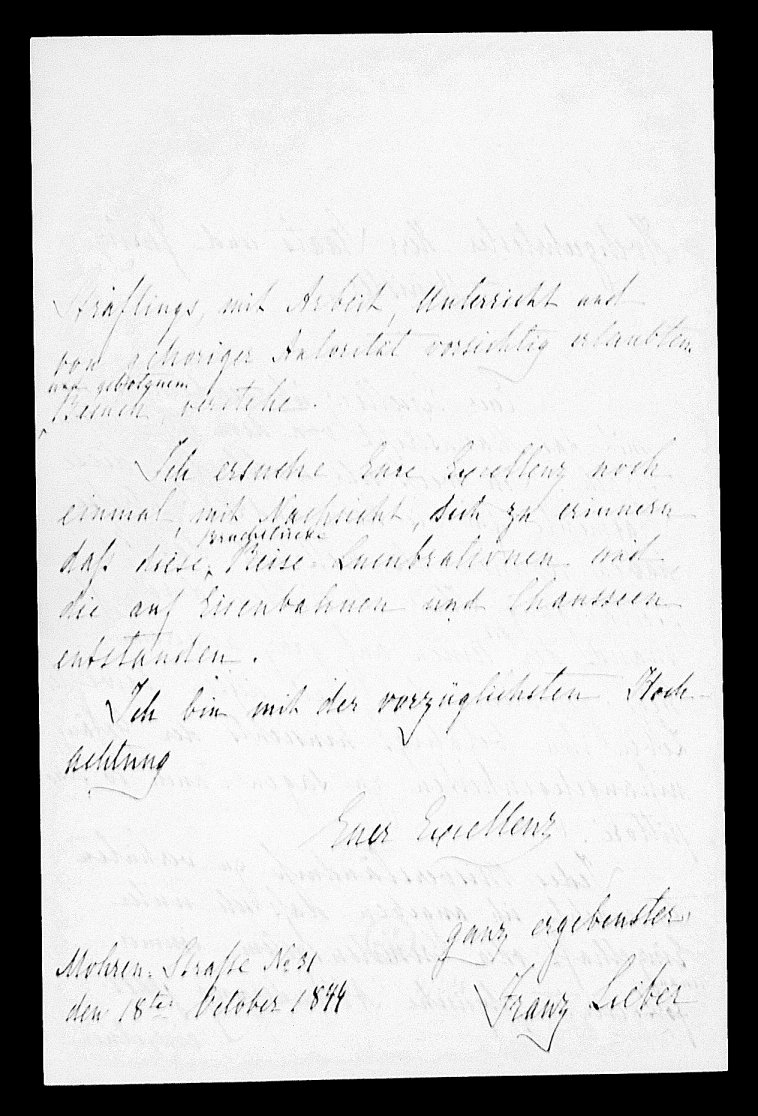 Sträflings, mit Arbeit, Unterricht und
von gehöriger Autorität vorsichtig erlaubten
und gebotnem
Besuch, verstehe.
Ich ersuche Eure Excellenz noch
einmal, mit Nachsicht, sich zu erinnern
daß diese Reise-Lucubrationen und
die auf Eisenbahnen und Chausseen
entstanden.
Ich bin mit der vorzüglichsten Hoch
achtung
Euer Excellenz
ganz ergebenster,
Franz Lieber
Mohren-Straße No 31
den 18ten October 1844